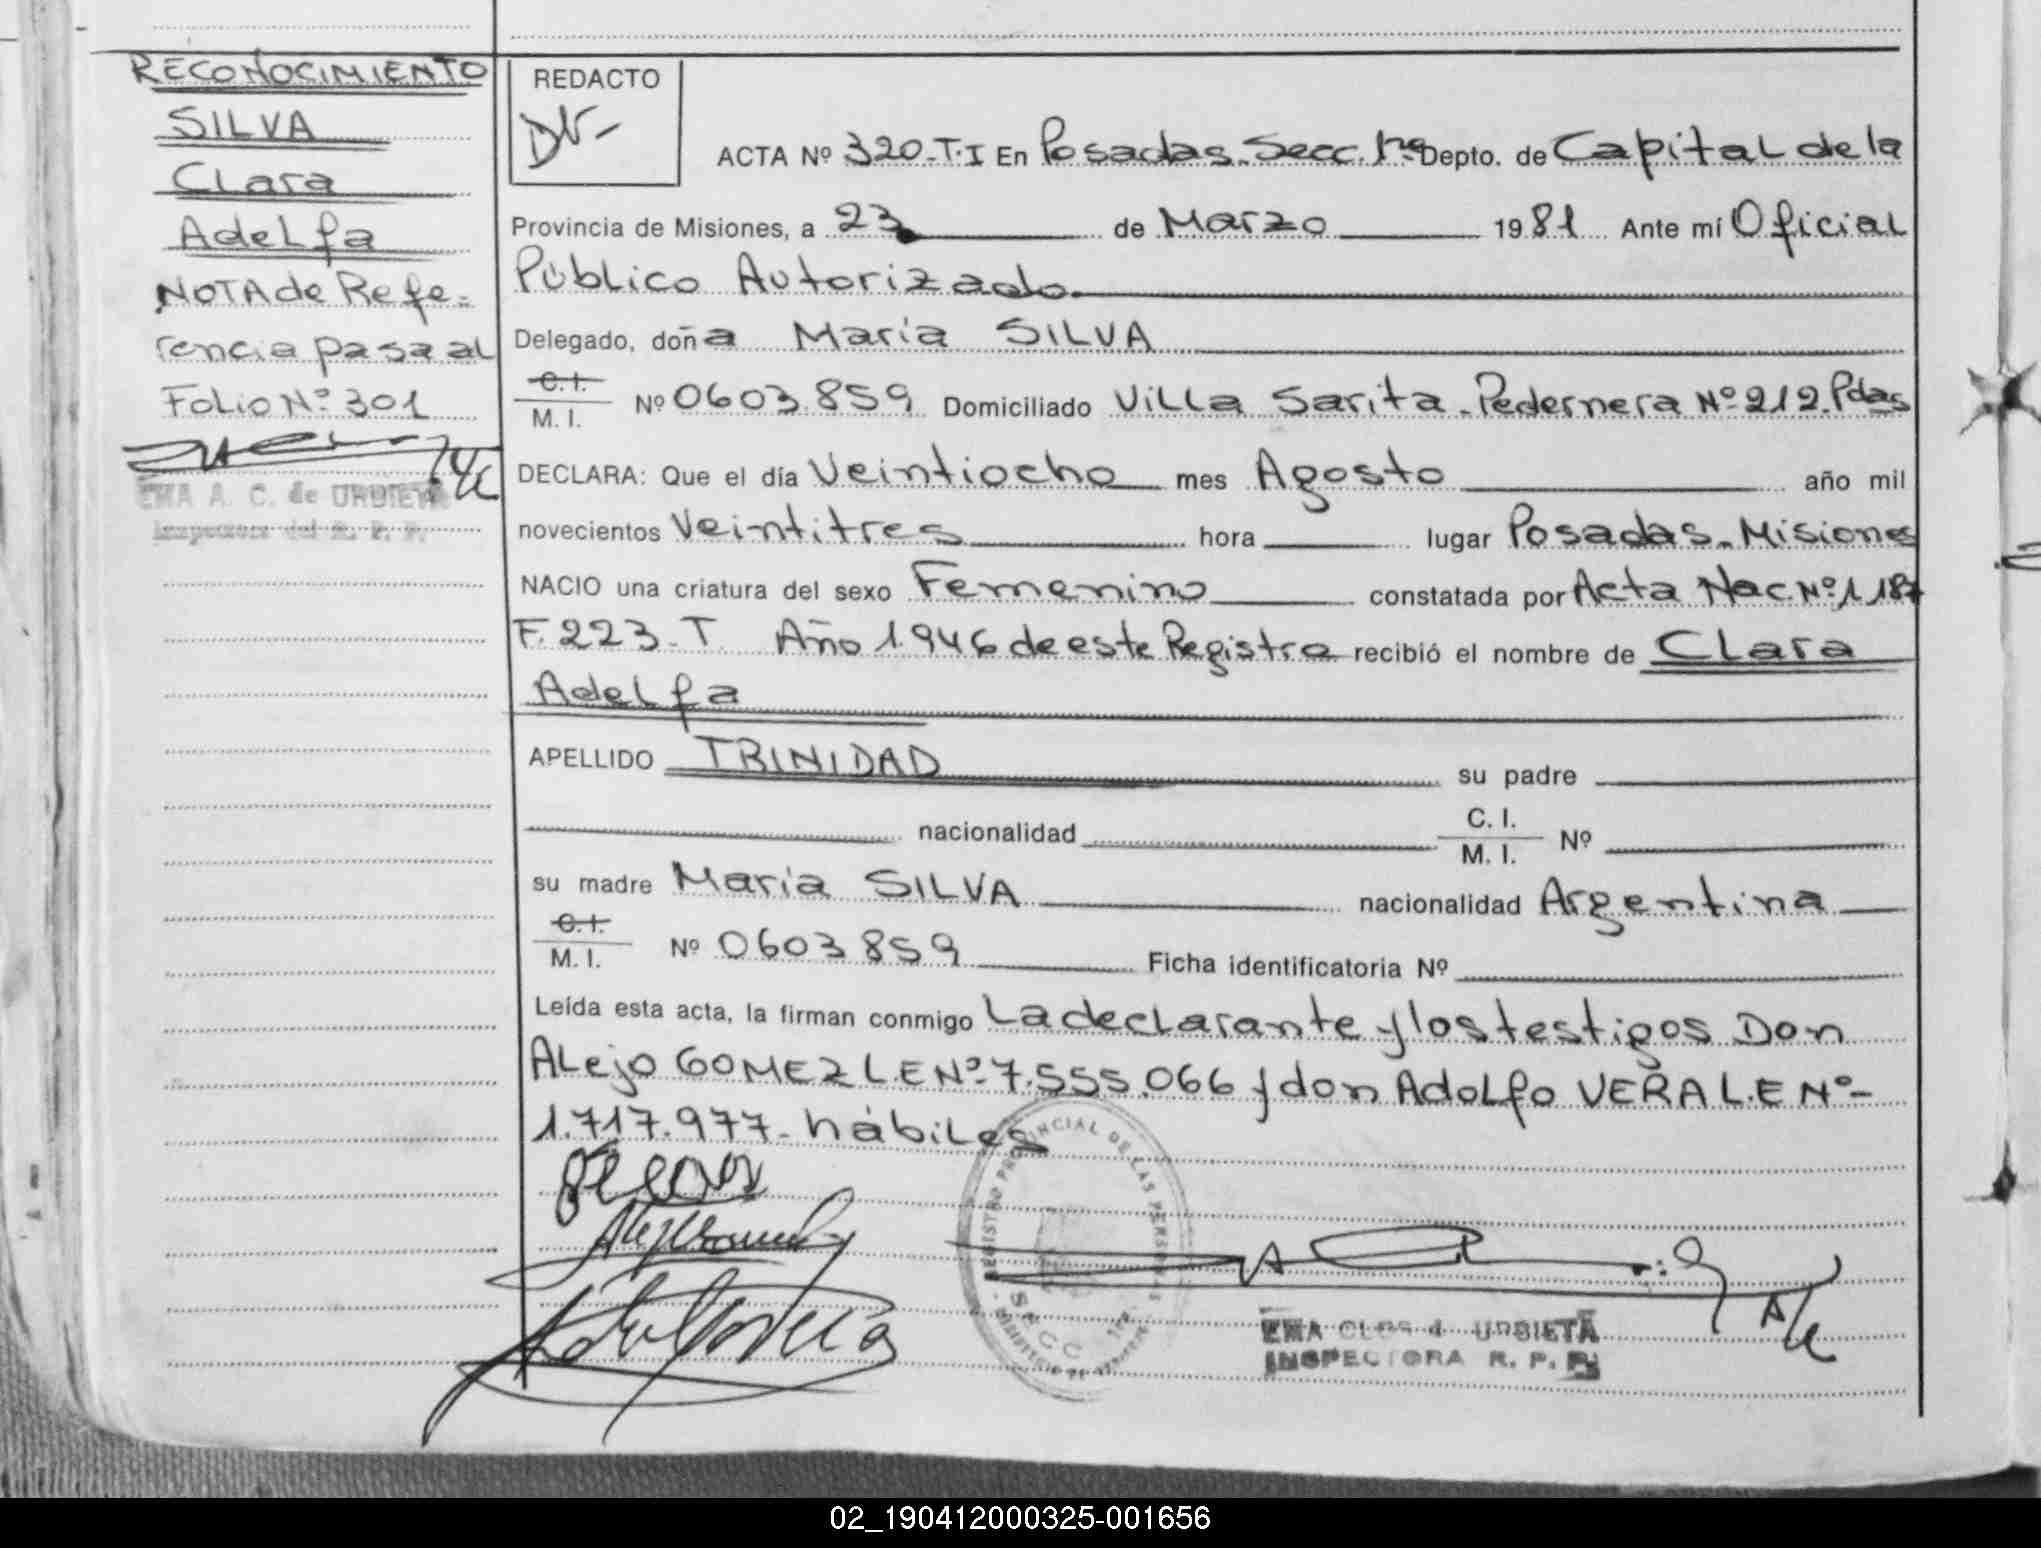 RECONOCIMIENTO
SILVA
Clara
Adelfa
NOTA de Refe-
rencia pasa al
Folio Nº 301
EMA A. C. de URBIETA
Inspectora del R. P. P.
REDACTO
ACTA Nº 320-T.I En Posadas. Secc. 1ra Depto. de Capital de la
Provincia de Misiones, a 23 de Marzo 1981 Ante mí Oficial
Público Autorizado
Delegado, doña María SILVA
C. I.
M. I. Nº 0603.859 Domiciliado Villa Sarita - Pedernera Nº 212. Pdas
DECLARA: Que el día Veintiocho mes Agosto año mil
novecientos Veintitres hora lugar Posadas - Misiones
NACIO una criatura del sexo Femenino constatada por Acta Nac. Nº 1187
F. 223 - T. Año 1.946 de este Registro recibió el nombre de Clara
Adelfa
APELLIDO TRINIDAD su padre
nacionalidad C. I.
M. I. Nº
su madre María SILVA nacionalidad Argentina
C. I.
M. I. Nº 0603859 Ficha identificatoria Nº
Leída esta acta, la firman conmigo La declarante y los testigos Don
Alejo GOMEZ L.E Nº 7.555.066 y don Adolfo VERA L.E Nº-
1.717.977- hábiles
REGISTRO PROVINCIAL DE LAS PERSONAS
SECC. 1ra.
EMA CLOS d. URBIETA
INSPECTORA R. P. P.
02_190412000325-001656